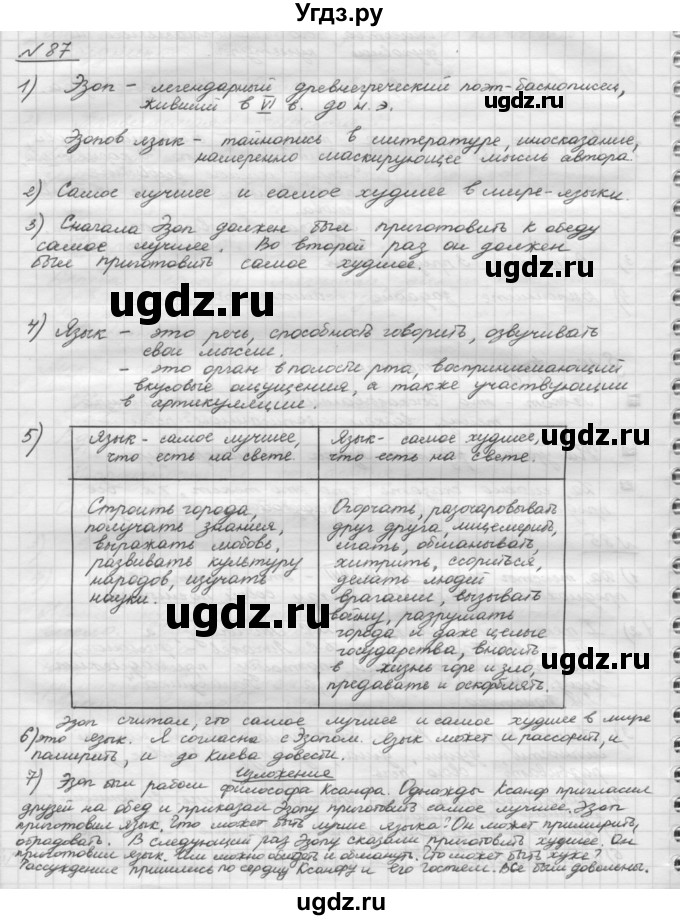 Угдз.ру
№ 87
1) Эзоп – легендарный древнегреческий поэт-баснописец,
живший в VI в. до н. э.
Эзопов язык – тайнопись в литературе, иносказание,
намеренно маскирующее мысль автора.
2) Самое лучшее и самое худшее в мире – языки.
3) Сначала Эзоп должен был приготовить к обеду
самое лучшее. Во второй раз он должен
был приготовить самое худшее.
ugdz.ru
ugdz.ru
4) Язык – это речь, способность говорить, озвучивать
свои мысли.
– это орган в полости рта, воспринимающий
вкусовые ощущения, а также участвующий
в артикуляции.
ugdz.ru
5)
Язык – самое лучшее,
что есть на свете.
Язык – самое худшее,
что есть на свете.
Строить города,
получать знания,
выражать любовь,
развивать культуру
народов, изучать
науки.
Огорчать, разочаровывать
друг друга, лицемерить,
лгать, обманывать,
хитрить, ссориться,
делать людей
врагами, вызывать
войну, разрушать
города и даже целые
государства, вносить
в жизнь горе и зло,
предавать и оскорблять.
ugdz.ru
ugdz.ru
ugdz.ru
ugdz.ru
Эзоп считал, что самое лучшее и самое худшее в мире
6) это язык. Я согласна с Эзопом. Язык может и рассорить, и
помирить, и до Киева довести.
Изложение
7) Эзоп был рабом философа Ксанфа. Однажды Ксанф пригласил
друзей на обед и приказал Эзопу приготовить самое лучшее. Эзоп
приготовил язык. Что может быть лучше языка? Он может примирить,
обрадовать. В следующий раз Эзопу сказали приготовить худшее. Он
приготовил язык. Им можно обидеть и обмануть. Что может быть хуже?
Рассуждение пришлись по сердцу Ксанфу и его гостям. Все были довольны.